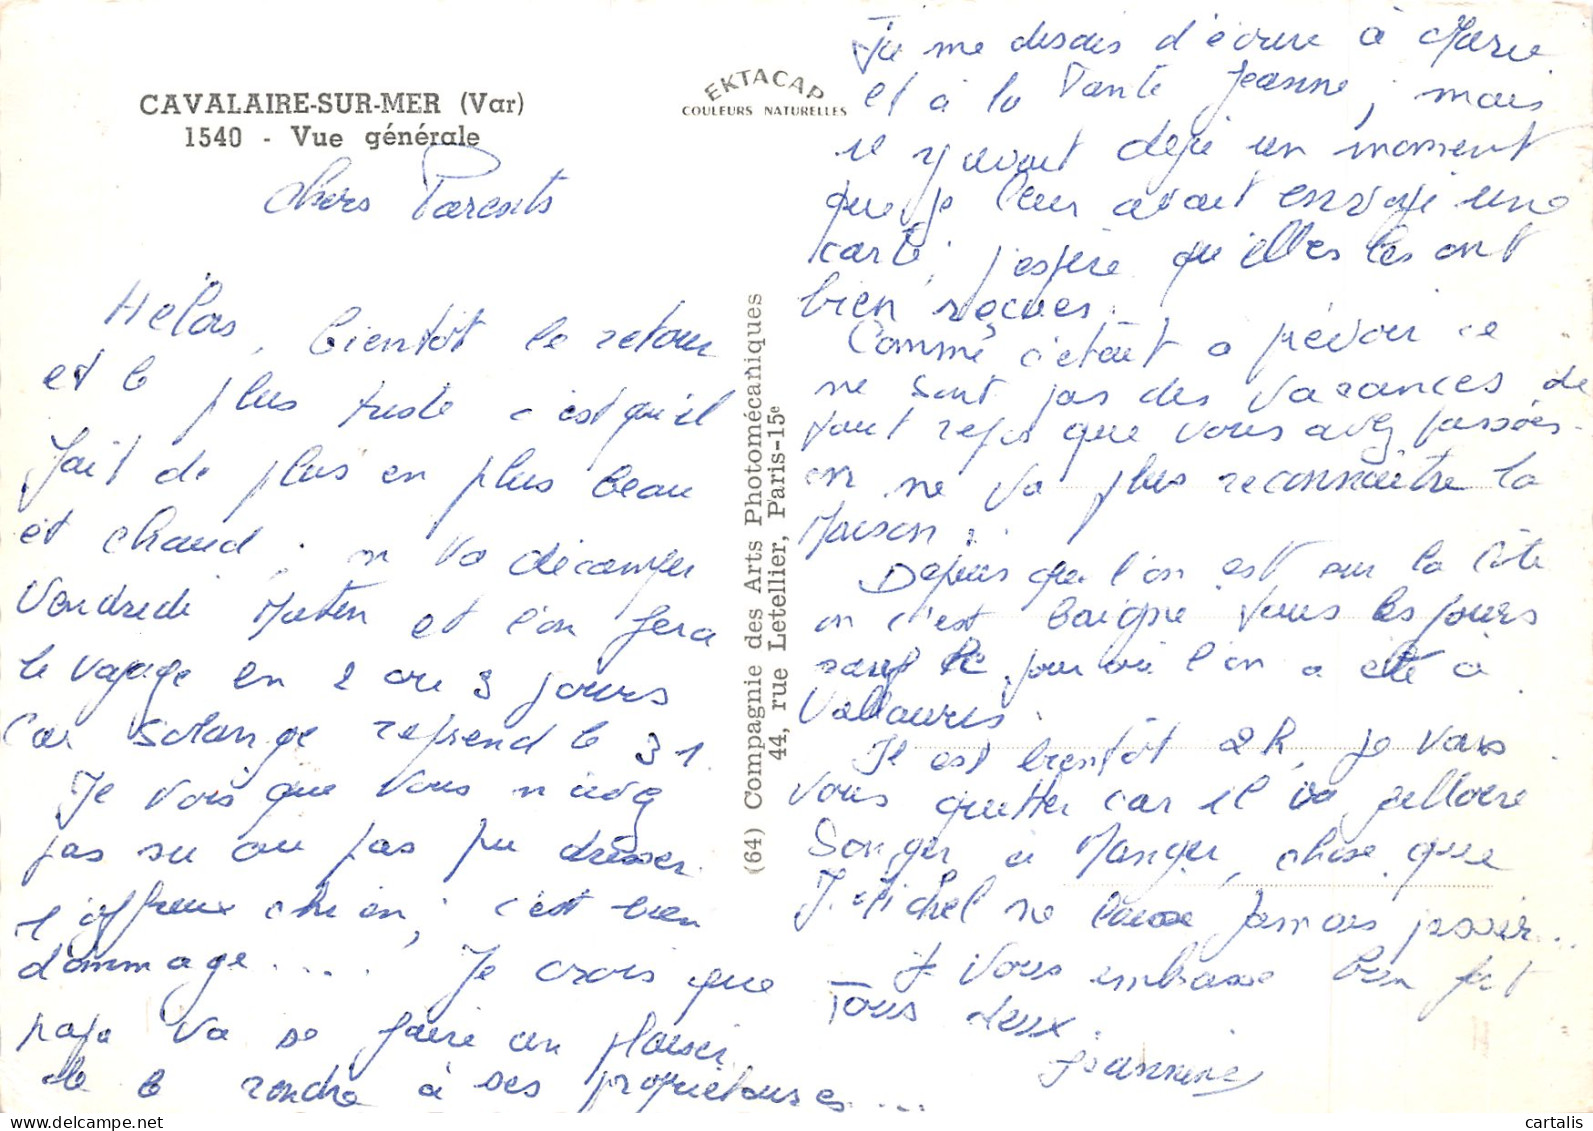 CAVALAIRE-SUR-MER (Var)
1540 - Vue générale
EKTACAP
COULEURS NATURELLES
Chers Parents
Hélas, bientôt le retour
et le plus triste c'est qu'il
fait de plus en plus beau
et chaud ; on va décamper
Vendredi Matin et l'on fera
le voyage en 2 ou 3 jours
Car Solange reprend le 31.
Je vois que vous n'avez
pas su ou pas pu dresser
l'affreux chien ; c'est bien
dommage .... Je crois que
papa va se faire un plaisir
de le rendre à ses propriétaires ...
(64) Compagnie des Arts Photomécaniques
44, rue Letellier, Paris-15e
Tu me disais d'écrire à Marie
et à la Tante Jeanne ; mais
il y avait déjà un moment
que je leur avait envoyé une
carte, j'espère qu'elles les ont
bien reçues.
Comme c'était à prévoir ce
ne sont pas des vacances de
tout repos que vous avez passées -
on ne va plus reconnaître la
Maison.
Depuis que l'on est sur la Côte
on c'est baigné tous les jours
sauf le jour où l'on a été à
Vallauris.
Il est bientôt 2h, je vais
vous quitter car il va falloire
Songer à Manger, chose que
J. Michel ne laisse jamais passer...
Je Vous embrasse bien fort
Tous deux.
Jeannine
cartalis